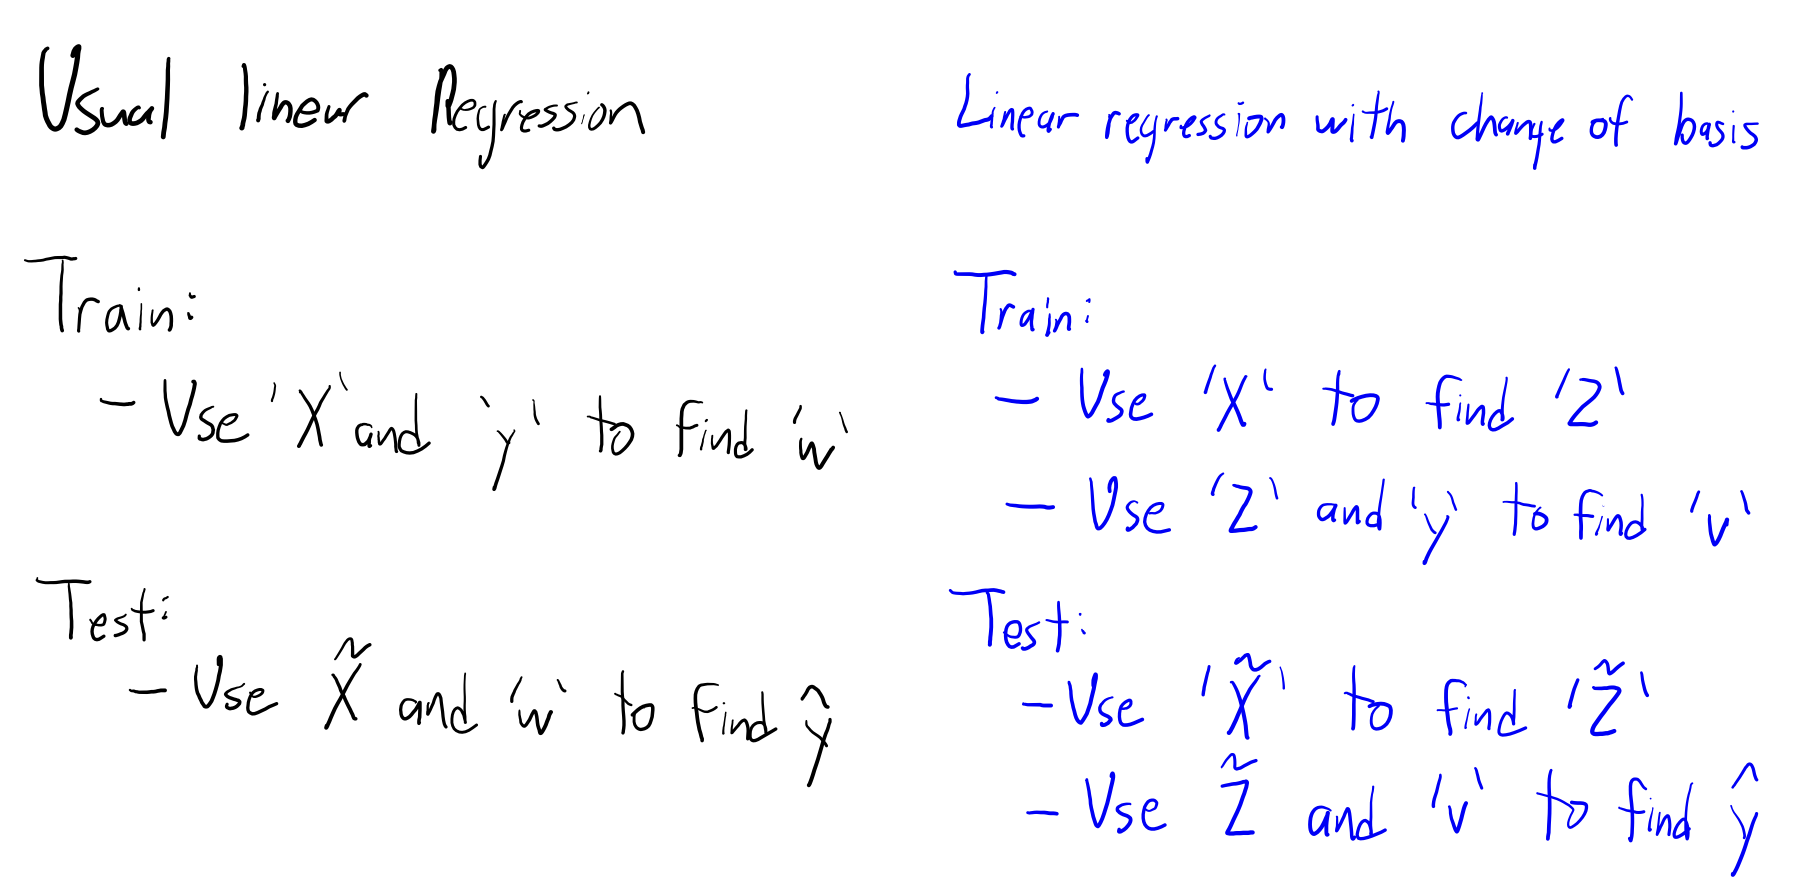 Usual linear Regression
Train:
- Use 'X' and 'y' to find 'w'
Test:
- Use X̃ and 'w' to find ŷ
Linear regression with change of basis
Train:
- Use 'X' to find 'Z'
- Use 'Z' and 'y' to find 'v'
Test:
- Use 'X̃' to find 'Z̃'
- Use Z̃ and 'v' to find ŷ